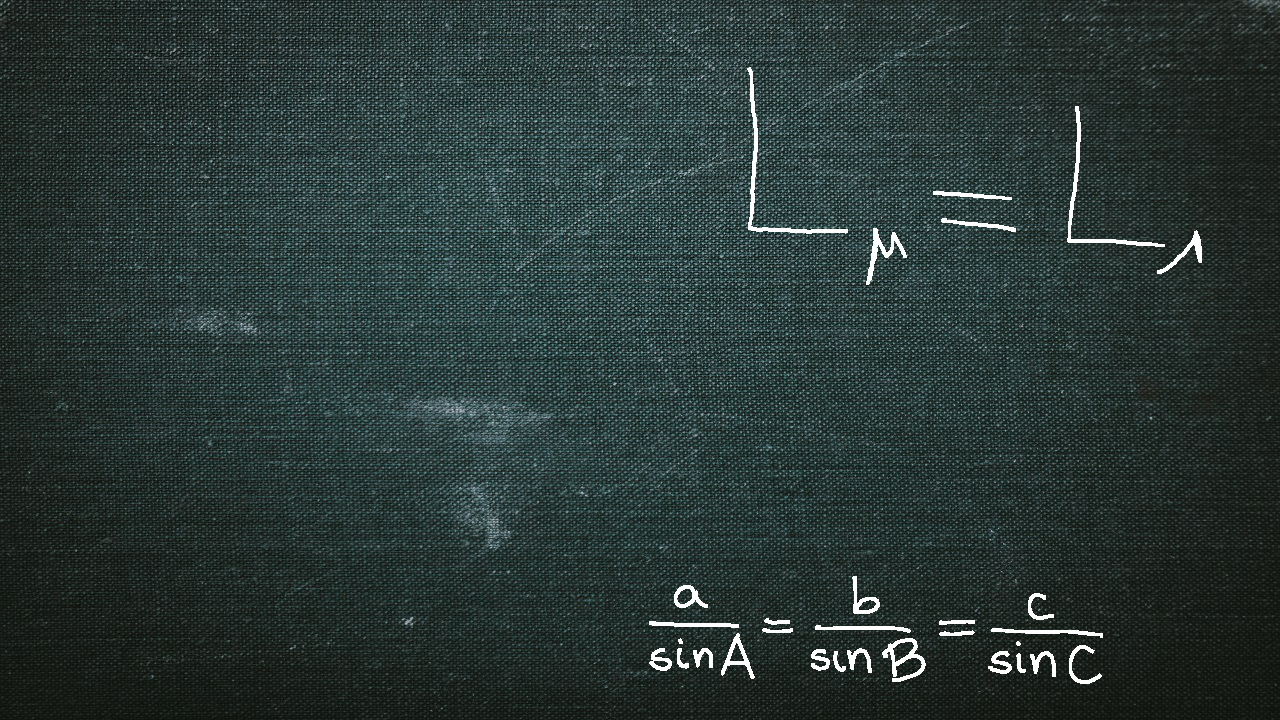 L_μ = L_λ
a/sinA = b/sinB = c/sinC